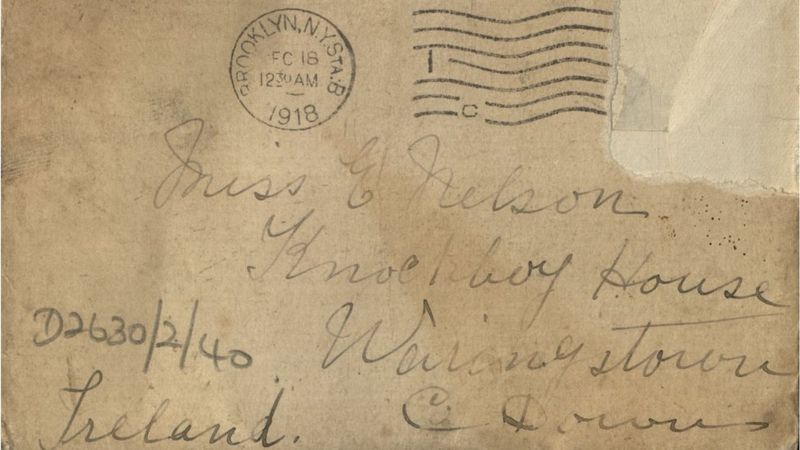 BROOKLYN, N.Y. STA. B
EC 18
12 30 AM
1918
I
C
Miss E Nelson
Knockboy House
Waringstown
D2630/2/40
C Down
Ireland.